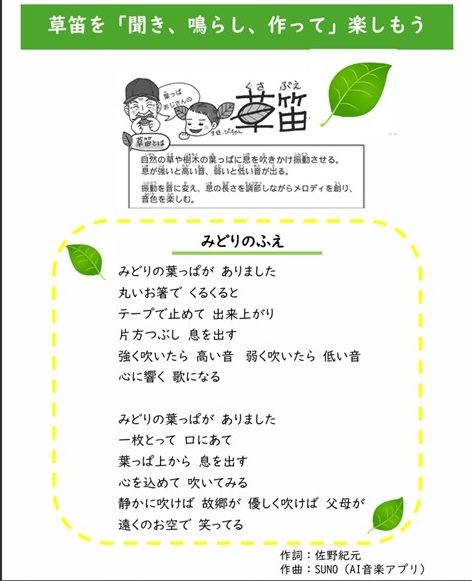 草笛を「聞き、鳴らし、作って」楽しもう
葉っぱ
おじさんの
くさ ぶえ
草笛
草笛とは
自然の草や樹木の葉っぱに息を吹きかけ振動させる。
息が強いと高い音、弱いと低い音が出る。
振動を音に変え、息の長さを調節しながらメロディを創り、
音色を楽しむ。
みどりのふえ
みどりの葉っぱが ありました
丸いお箸で くるくると
テープで止めて 出来上がり
片方つぶし 息を出す
強く吹いたら 高い音 弱く吹いたら 低い音
心に響く 歌になる
みどりの葉っぱが ありました
一枚とって 口にあて
葉っぱ上から 息を出す
心を込めて 吹いてみる
静かに吹けば 故郷が 優しく吹けば 父母が
遠くのお空で 笑ってる
作詞：佐野紀元
作曲：SUNO（AI音楽アプリ）